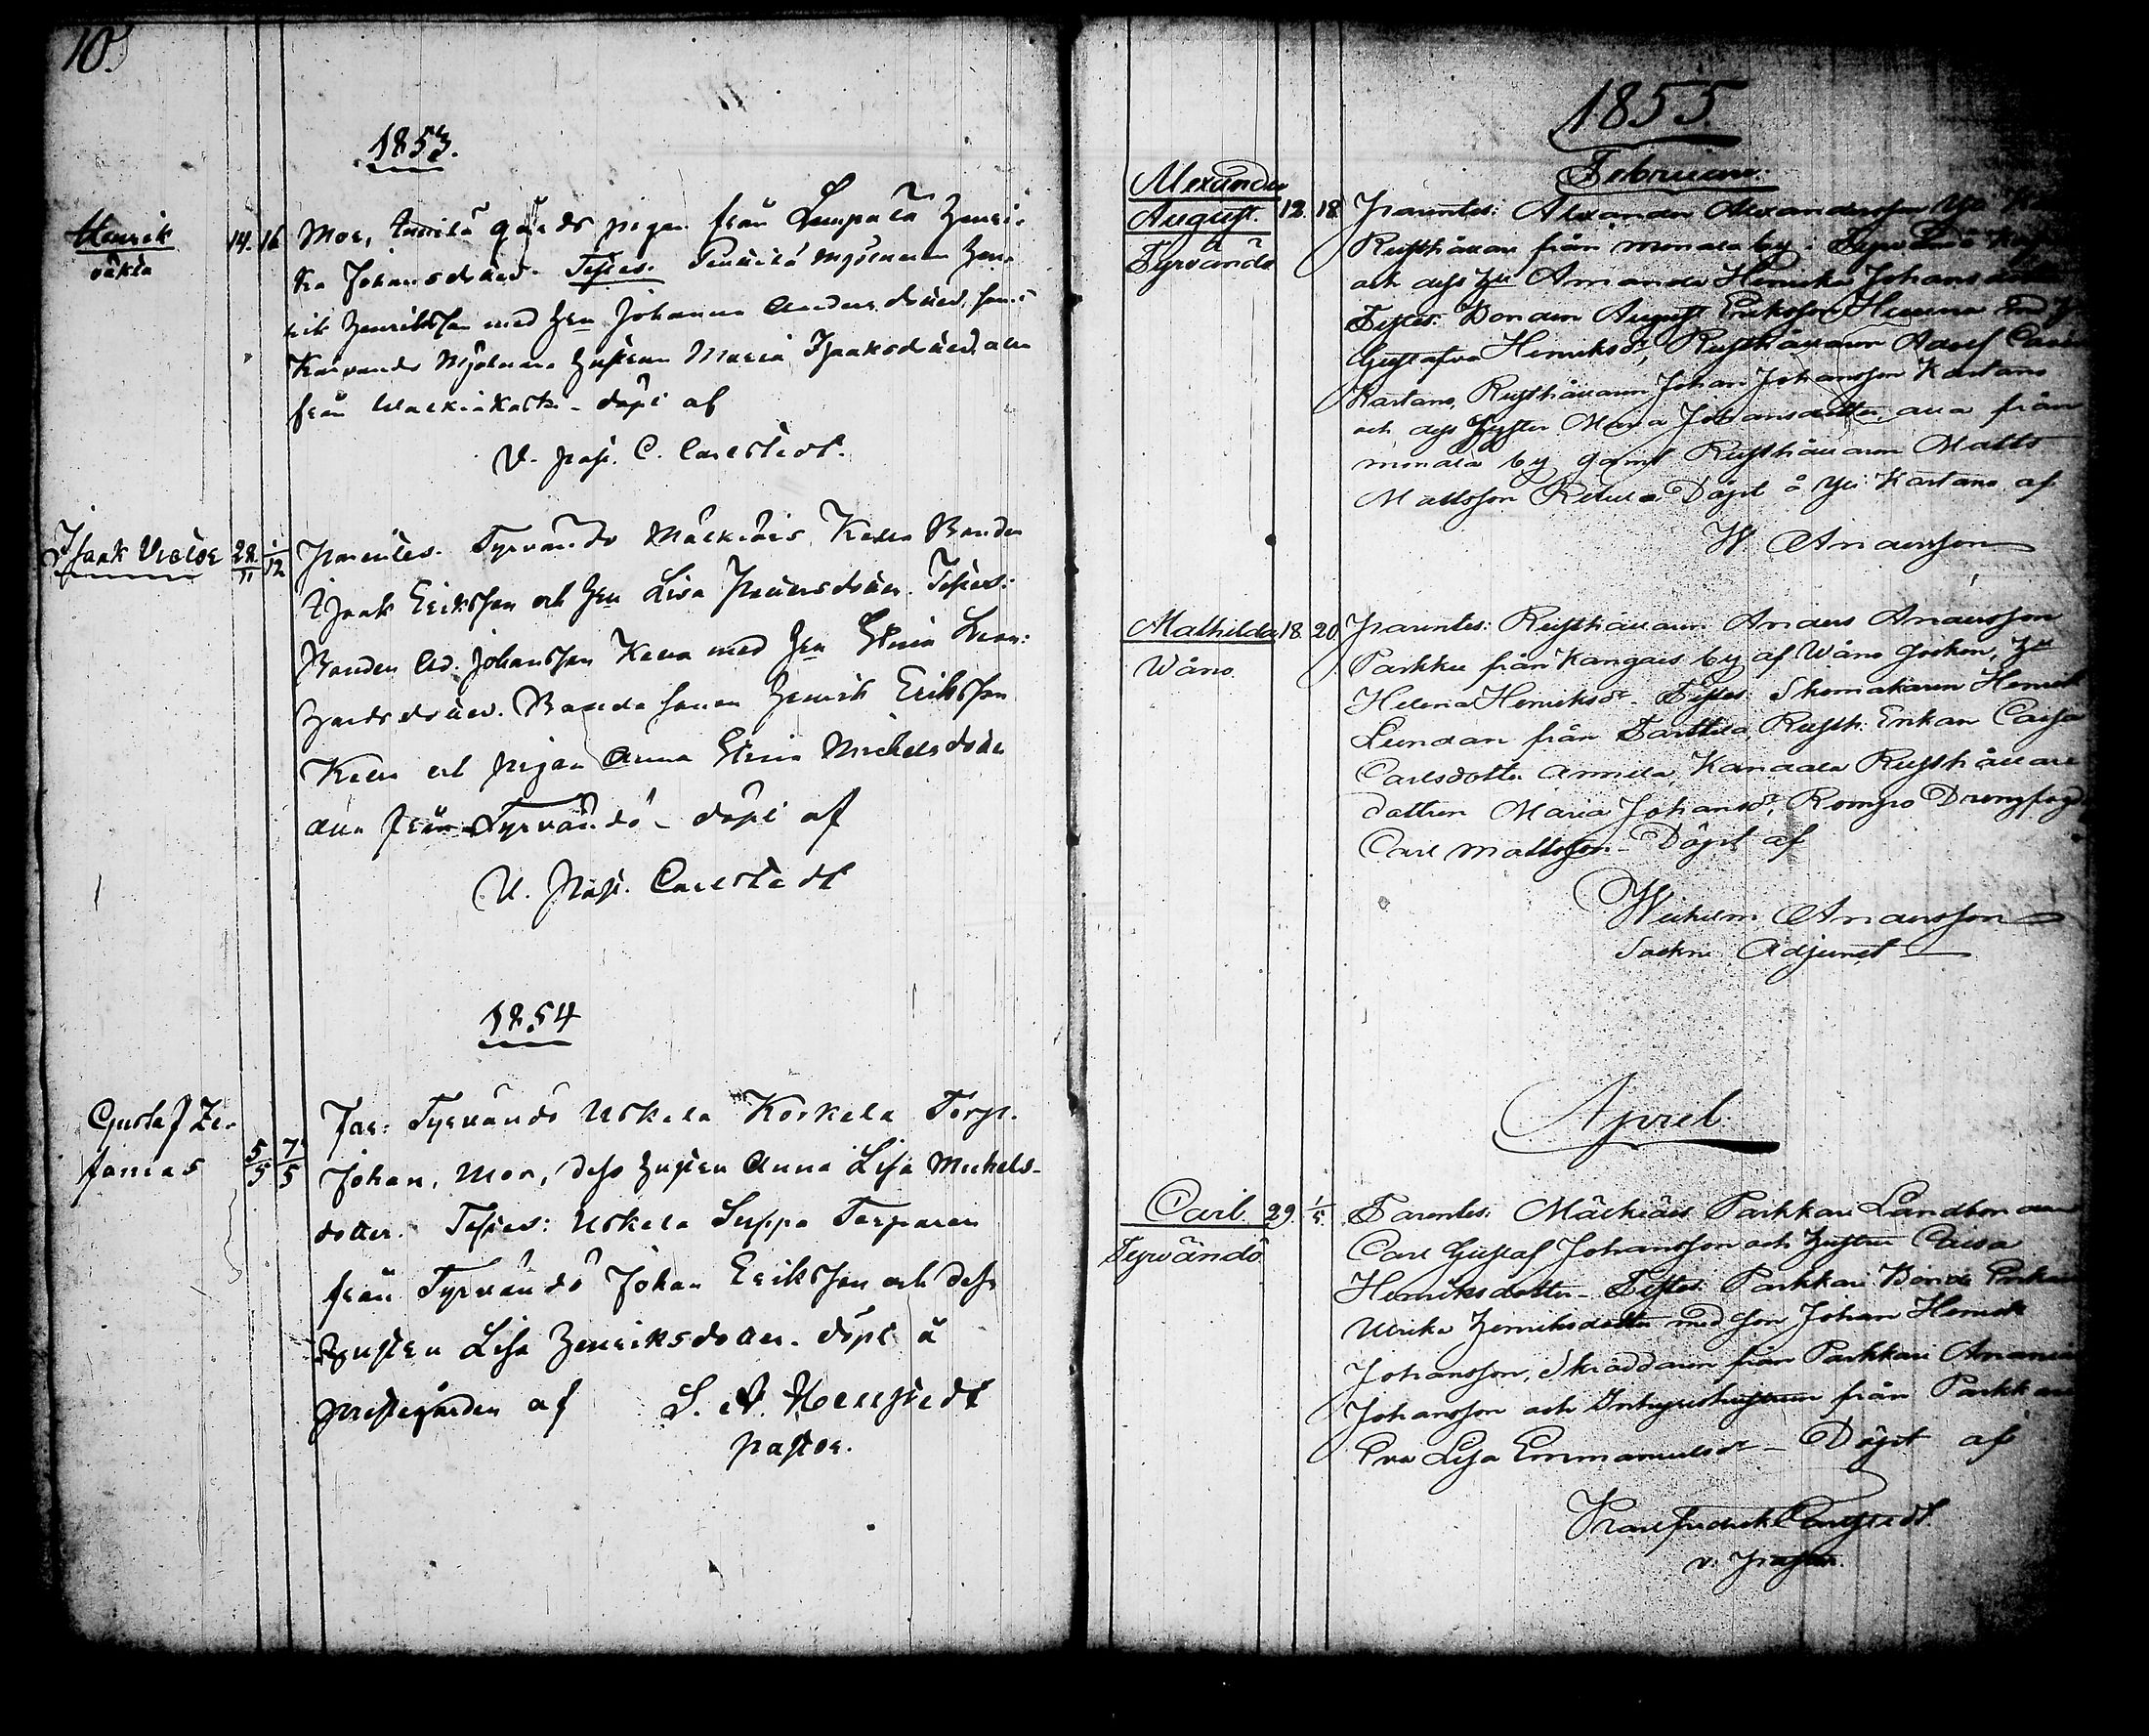 10.
1853.
Henrik
oäkta
14. 16
Mor, gårds pigan från Lempälä Henri-
ka Johansdotter. Testes. mjölnaren Hen-
rik Henriksson med Hu Johanna Andersdotter, samt
Mjölnare Hustrun Maria Isaaksdotter, alla
från döpt af
V. past. C. Carlstedt.
Isaak Victor
28/11 1/12
Parentes. Tyrvändö Mälkiäis Keku Bonden
Isaak Eriksson och Hu Lisa. Testes:
Bonden Ad. Johansson med Hu Stina Leon-
hardsdotter. Bonde sonen Henrik Eriksson
och pigan Anna Stina Michelsdotter
alla från Tyrvändö – döpt af
V. Past. Carlstedt
1854
Gustaf Ze-
fanias
5/5 7/5
Far: Tyrvändö Uskela Koskela Torp.
Johan, Mor, dess hustru Anna Lisa Michels-
dotter. Testes: Uskela Seppä Torparen
från Tyrvändö Johan Eriksson och dess
hustru Lisa Henriksdotter. döpt å
prestegården af S. A. Hellstedt
pastor.
1855
Februari.
Alexander
August.
Tyrvändö
12. 18.
Parentes: Alexander Alexandersson Yli
Rusthållare från Monaala by i Tyrvändö
och dess Hu Amanda Henrika Johansdotter
Testes: Bonden August Eriksson med
Gustafva Henriksdr, Rusthållaren Adolf
Kartano, Rusthållaren Johan Johansson Kartano
och dess Hustru Maria Johansdotter, alla från
Monaala by samt Rusthållaren Matts
Mattsson Döpt å Yli Kartano af
W. Andersson
Mathilda
Wåno.
18. 20.
Parentes: Rusthållaren Anders Andersson
Parkku från Kangais by af Wåno Socken, Hu
Helena Henriksdr. Testes: Skomakaren Henrik
Lundan från Tarttila, Rusth. Enkan Caisa
Carlsdotter Annila, Rusthållare
dottren Maria Johansdr, Rompo Drengfogd
Carl Mattsson. – Döpt af
Wilhelm Andersson
Sockne Adjunct
April.
Carl.
Tyrvändö.
29. 1/5.
Parentes: Mälkiäis Parkkari Landbonden
Carl Gustaf Johansson och Hustru Caisa
Henriksdotter – Testes: Parkkari Bonde Enkan
Ulrika Henriksdotter med son Johan Henrik
Johansson, Skräddaren från Parkkari Ananias
Johansson och Inhyseshustrun från Parkkari
Eva Lisa Emmanuelsdr – Döpt af
Karl Fredrik Carlstedt
v. Pastor.